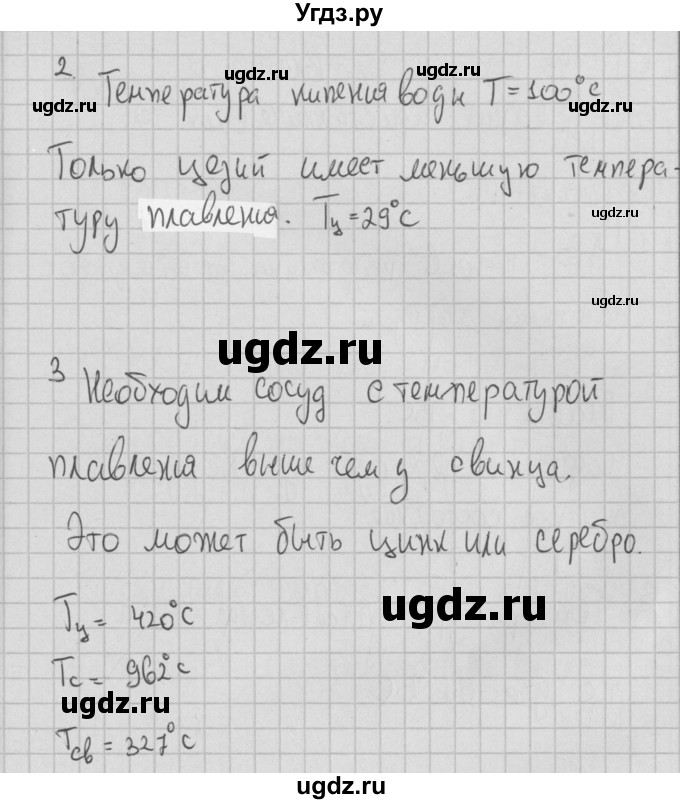 Угдз.ру
ugdz.ru ugdz.ru
2. Температура кипения воды T = 100°C
ugdz.ru ugdz.ru ugdz.ru
Только цезий имеет меньшую темпера-
туру плавления. Tц = 29°C
ugdz.ru
ugdz.ru
ugdz.ru
3 Необходим сосуд с температурой
плавления выше чем у свинца.
Это может быть цинк или серебро.
Tц = 420°C
ugdz.ru
Tс = 962°C
ugdz.ru
Tсв = 327°C
ugdz.ru